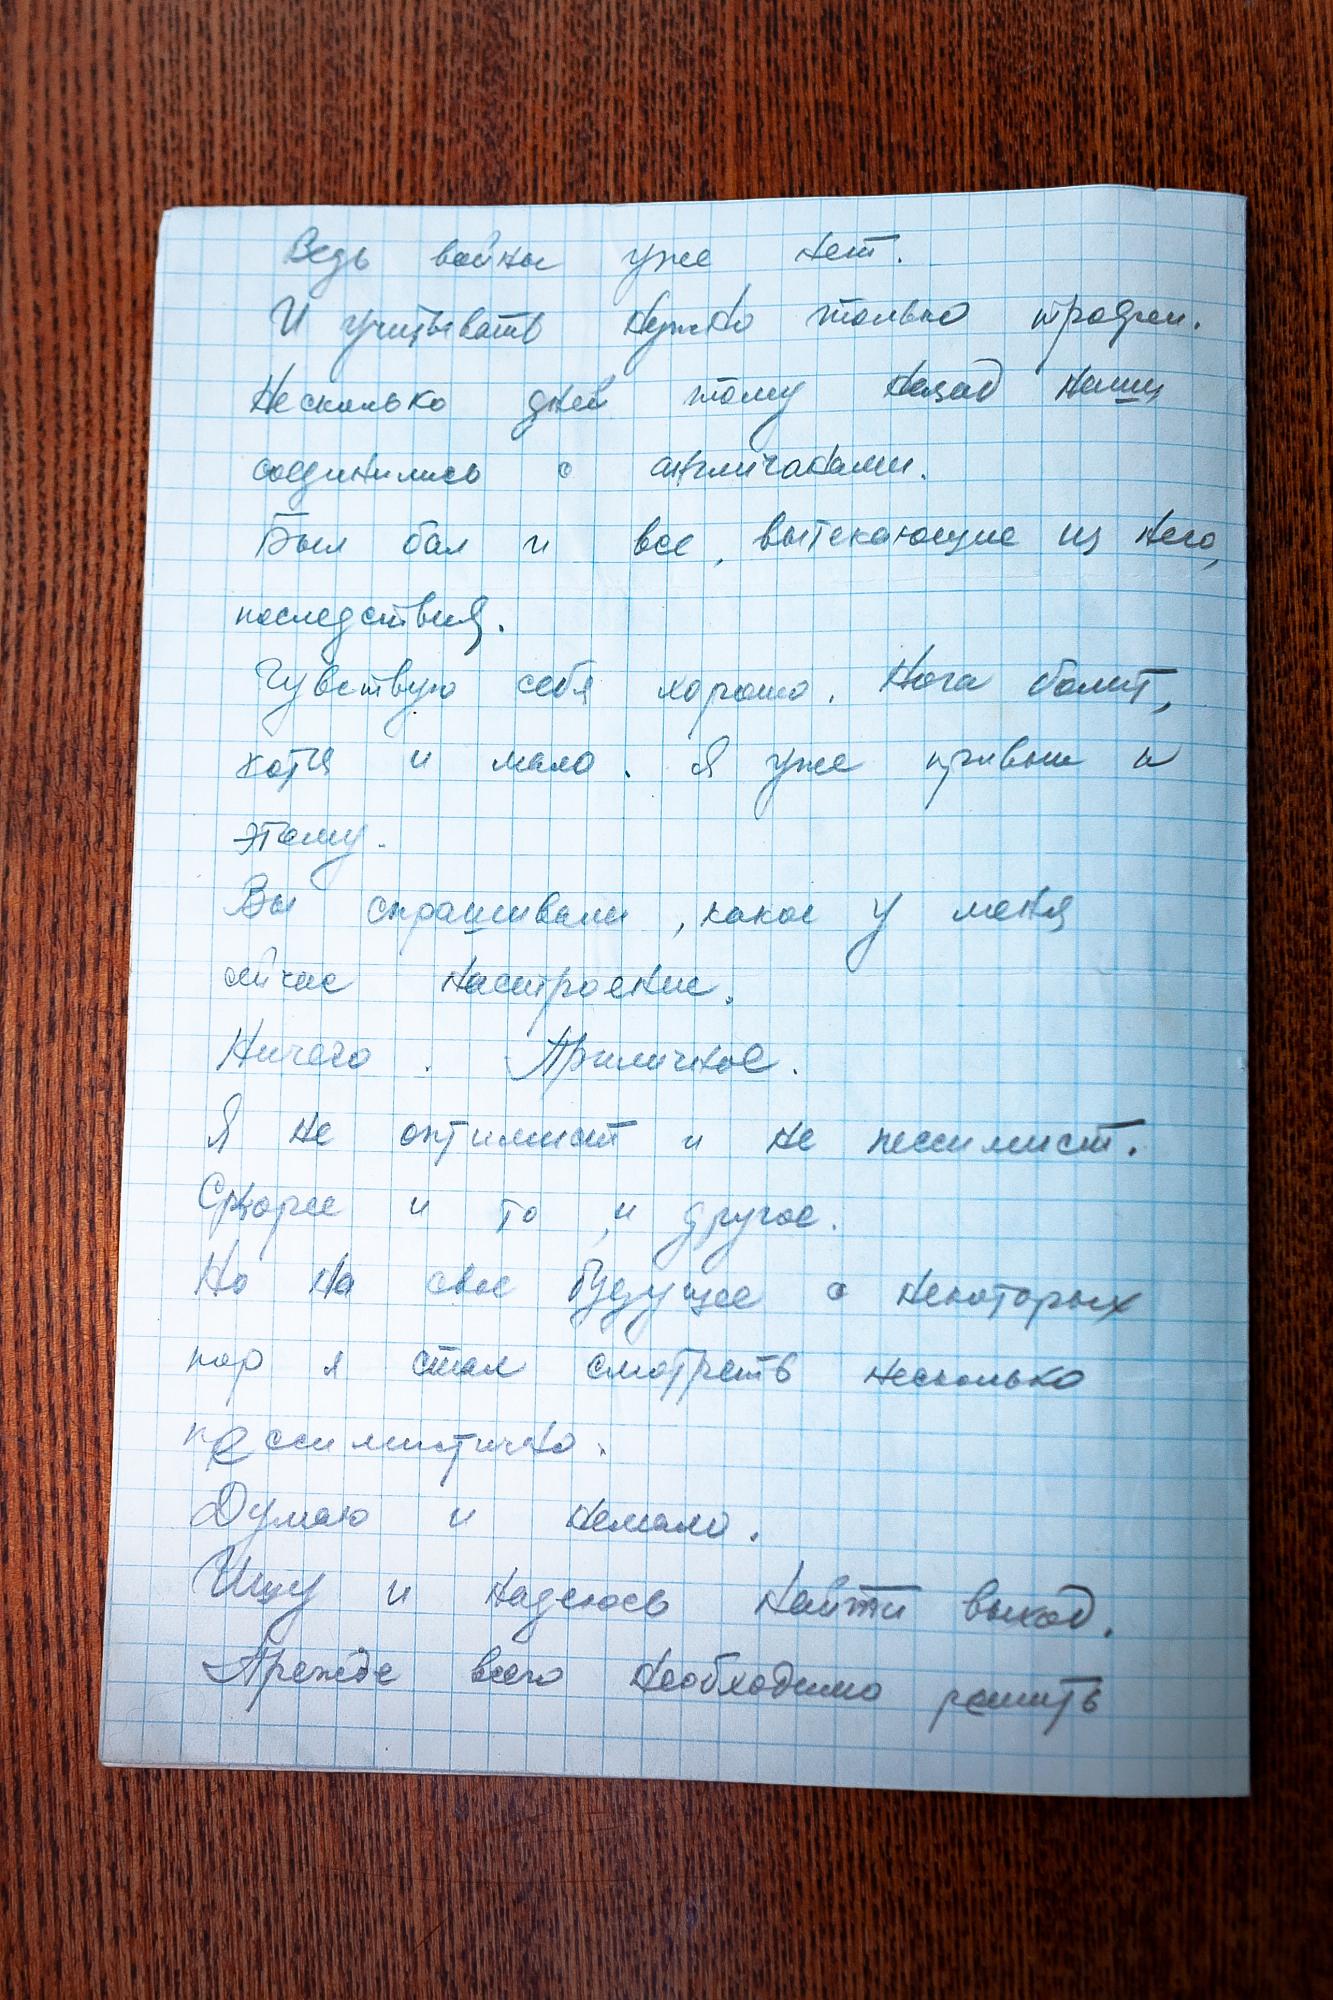 Ведь войны уже нет.
И учитывать нужно только трофеи.
Несколько дней тому назад наши
соединились с англичанами.
Был бал и все, вытекающие из него,
последствия.
Чувствую себя хорошо. Нога болит,
хотя и мало. Я уже привык к
этому.
Вы спрашивали, какое у меня
сейчас настроение.
Ничего. Приличное.
Я не оптимист и не пессимист.
Скорее и то, и другое.
Но на свое будущее с некоторых
пор я стал смотреть несколько
пессимистично.
Думаю и немало.
Ищу и надеюсь найти выход.
Прежде всего необходимо решить